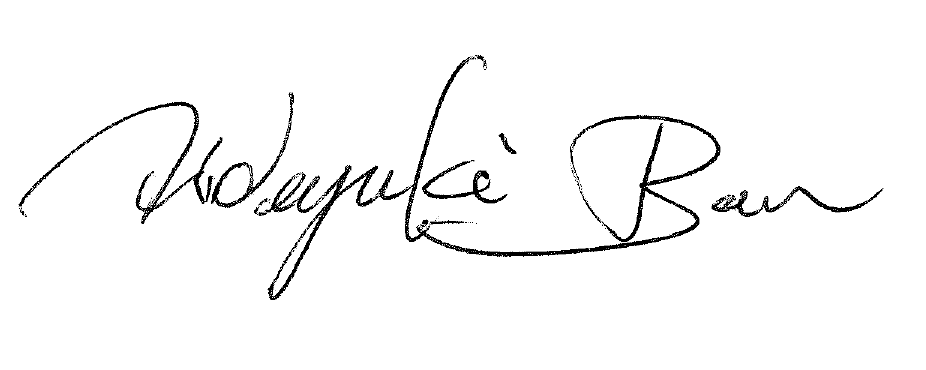 Hideyuki Ban